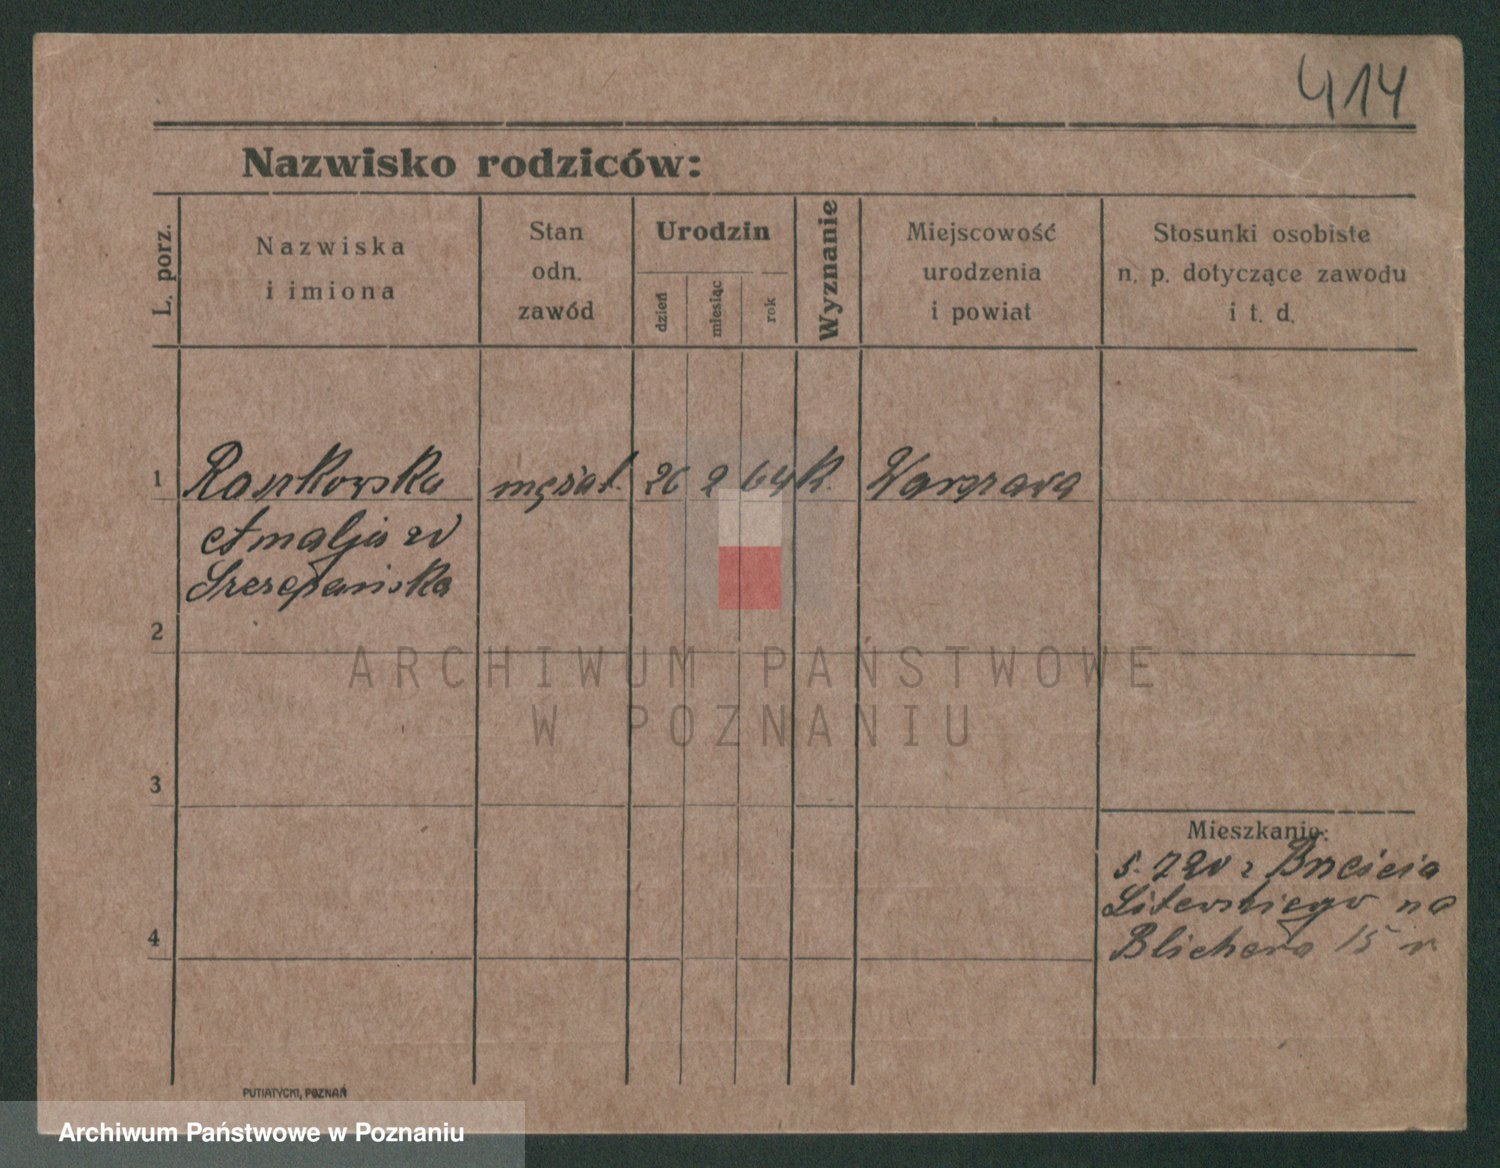 414
Nazwisko rodziców:
L. porz.
Nazwiska
i imiona
Stan
odn.
zawód
Urodzin
dzień
miesiąc
rok
Wyznanie
Miejscowość
urodzenia
i powiat
Stosunki osobiste
n. p. dotyczące zawodu
i t. d.
1 mężat. 26 2 64 K. Warszawa
Amalja
Szczepańska
2
ARCHIWUM PAŃSTWOWE
W POZNANIU
3
Mieszkanie:
5. 7 20 z Brześcia
Litewskiego na
Blichera 15
4
PUTIATYCKI, POZNAŃ
Archiwum Państwowe w Poznaniu